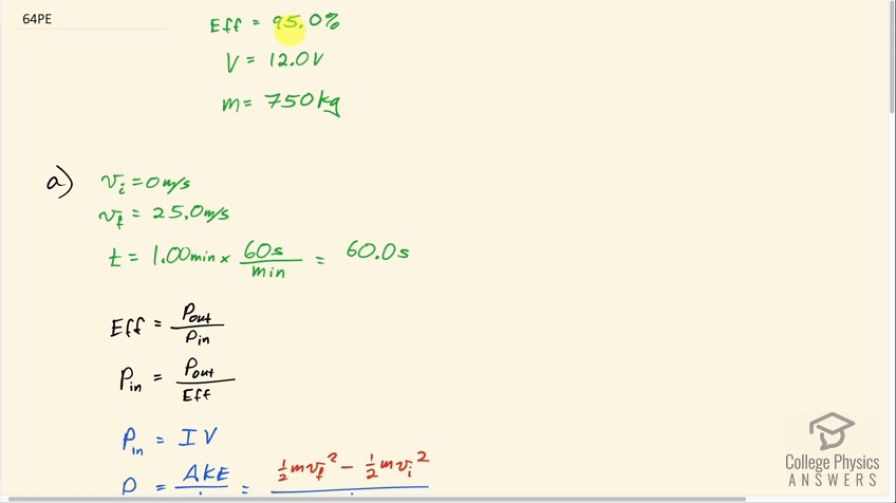 64PE
Eff = 95.0%
V = 12.0V
m = 750kg
a) v_i = 0 m/s
v_f = 25.0 m/s
t = 1.00min × 60s/min = 60.0s
Eff = Pout/Pin
Pin = Pout/Eff
Pin = IV
P = ΔKE/ = ½mv_f² − ½mv_i²
College Physics
ANSWERS